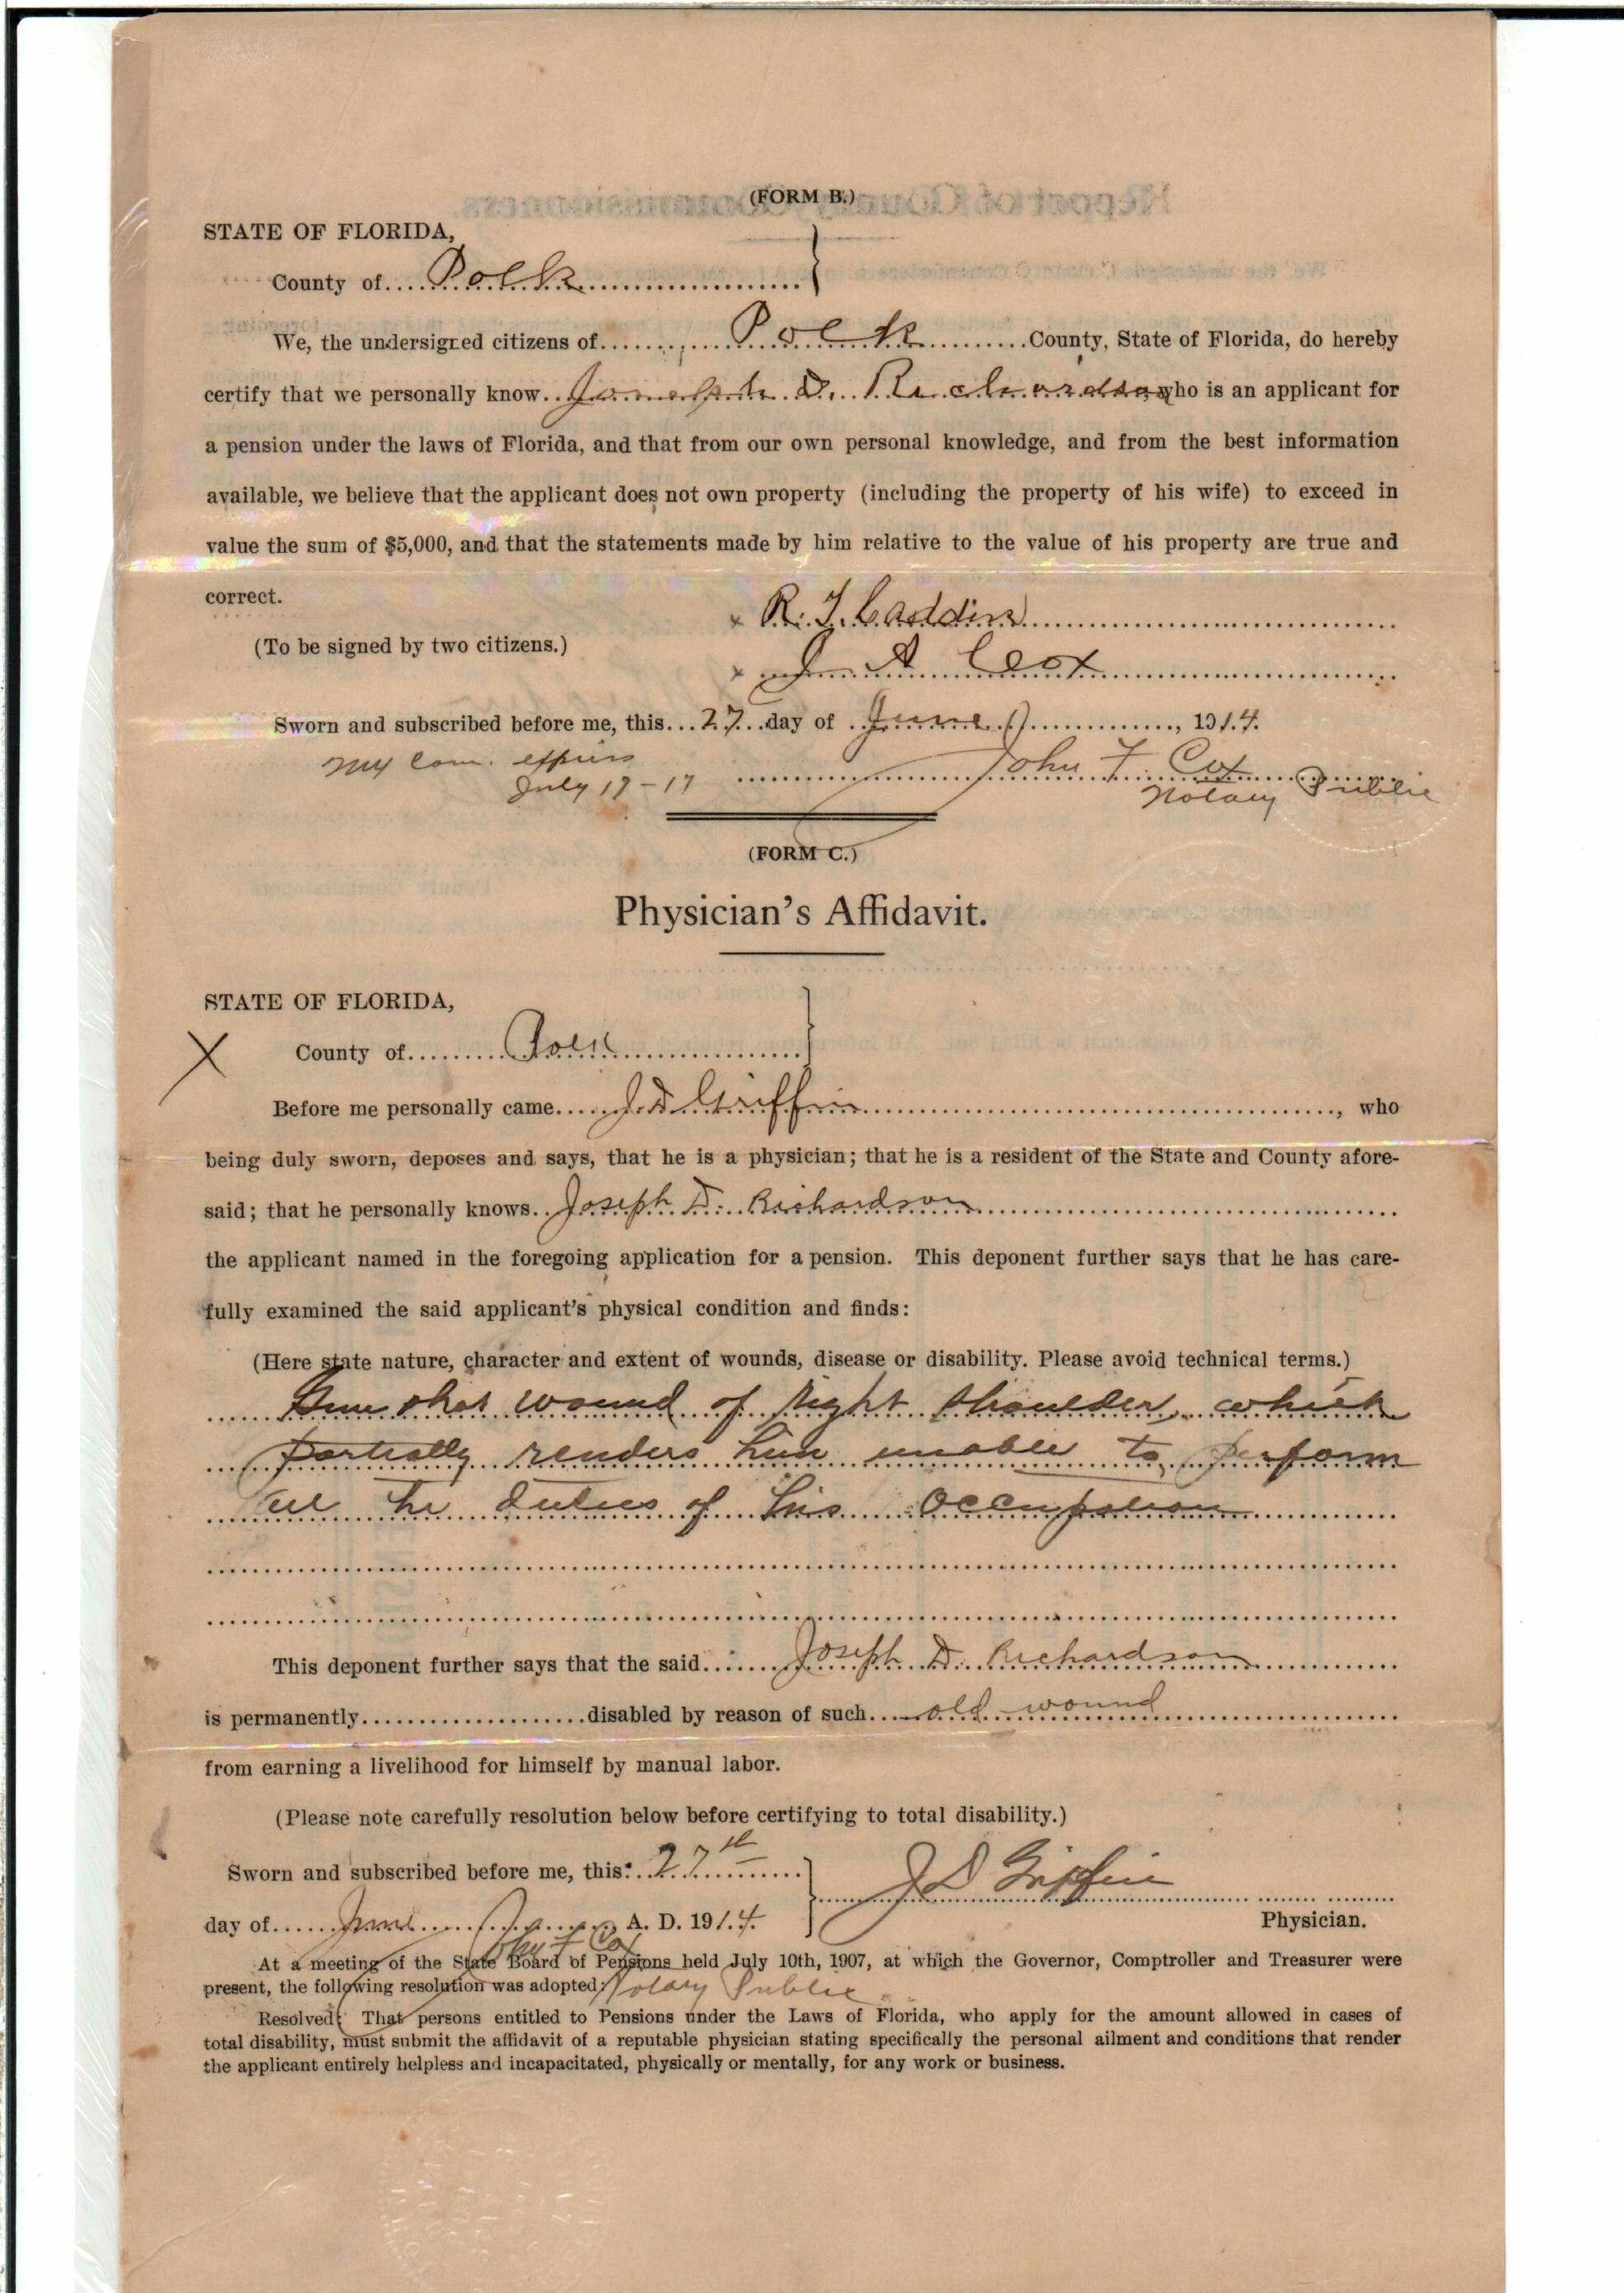 (FORM B.)
STATE OF FLORIDA,
County of Polk
We, the undersigned citizens of Polk County, State of Florida, do hereby
certify that we personally know Joneseph D. Richardson who is an applicant for
a pension under the laws of Florida, and that from our own personal knowledge, and from the best information
available, we believe that the applicant does not own property (including the property of his wife) to exceed in
value the sum of $5,000, and that the statements made by him relative to the value of his property are true and
correct.
R. T. Caddin
(To be signed by two citizens.)
J. A. Cox
Sworn and subscribed before me, this 27 day of June, 1914.
My Com. expires
July 17-17
John F. Cox
Notary Public
(FORM C.)
Physician's Affidavit.
STATE OF FLORIDA,
X
County of Polk
Before me personally came J. D. Griffin, who
being duly sworn, deposes and says, that he is a physician; that he is a resident of the State and County afore-
said; that he personally knows Joseph D. Richardson
the applicant named in the foregoing application for a pension. This deponent further says that he has care-
fully examined the said applicant's physical condition and finds:
(Here state nature, character and extent of wounds, disease or disability. Please avoid technical terms.)
Gun shot wound of right shoulder, which
partially renders him unable to perform
all the duties of his occupation
This deponent further says that the said Joseph D. Richardson
is permanently disabled by reason of such old wound
from earning a livelihood for himself by manual labor.
(Please note carefully resolution below before certifying to total disability.)
Sworn and subscribed before me, this 27th
J D Griffin
day of June A. D. 1914.
Physician.
John F. Cox
At a meeting of the State Board of Pensions held July 10th, 1907, at which the Governor, Comptroller and Treasurer were
present, the following resolution was adopted:
Notary Public
Resolved: That persons entitled to Pensions under the Laws of Florida, who apply for the amount allowed in cases of
total disability, must submit the affidavit of a reputable physician stating specifically the personal ailment and conditions that render
the applicant entirely helpless and incapacitated, physically or mentally, for any work or business.